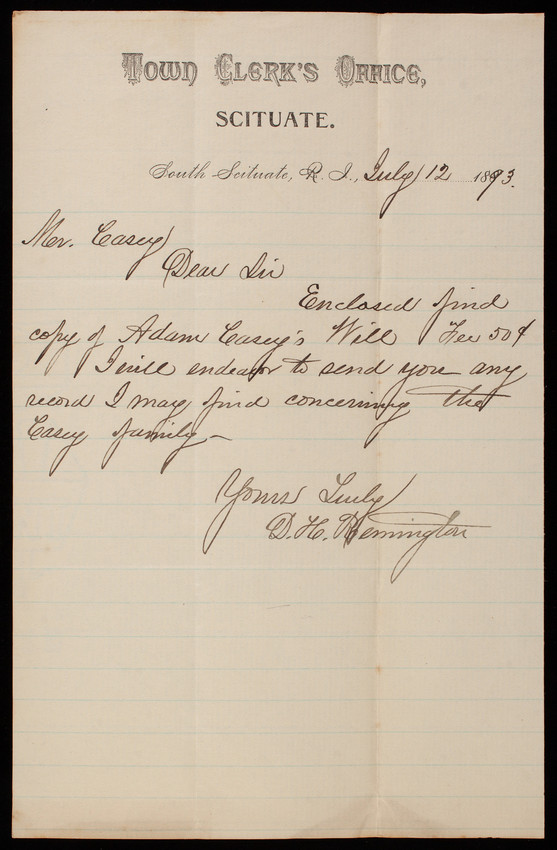 TOWN CLERK'S OFFICE,
SCITUATE.
South Scituate, R. I., July 12 1893.
Mr. Casey
Dear Sir
Enclosed find
copy of Adam Casey's Will Fee 50¢
I will endeavor to send you any
record I may find concerning the
Casey family—
Yours Truly
D. H. Remington